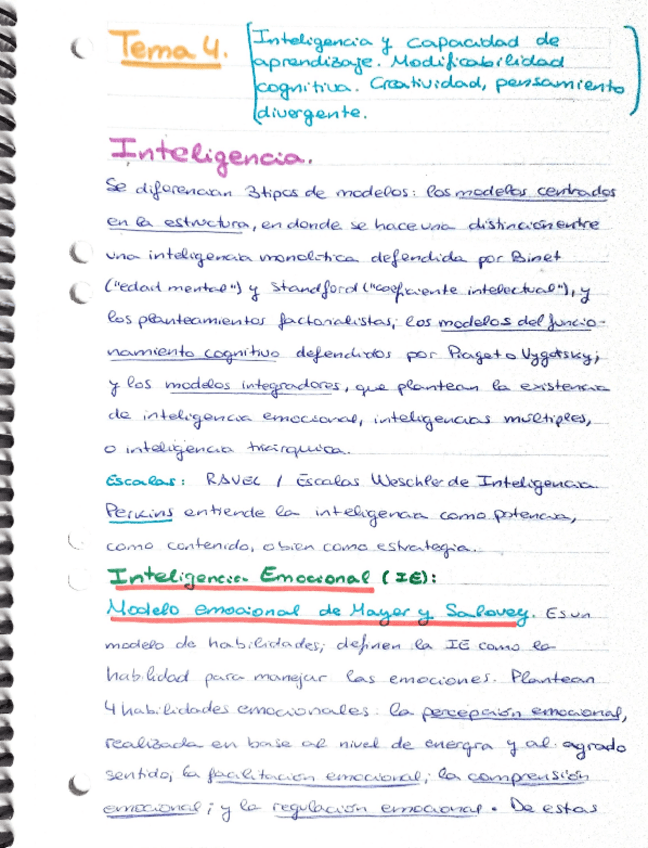 Tema 4.
Inteligencia y capacidad de
aprendizaje. Modificabilidad
cognitiva. Creatividad, pensamiento
divergente.
Inteligencia.
Se diferencian 3 tipos de modelos: los modelos centrados
en la estructura, en donde se hace una distinción entre
una inteligencia monolítica defendida por Binet
("edad mental") y Standford ("coeficiente intelectual"), y
los planteamientos factorialistas; los modelos del funcio-
namiento cognitivo defendidos por Piaget o Vygotsky;
y los modelos integradores, que plantean la existencia
de inteligencia emocional, inteligencias múltiples,
o inteligencia triárquica.
Escalas: RAVEL / Escalas Weschler de Inteligencia
Perkins entiende la inteligencia como potencia,
como contenido, o bien como estrategia.
Inteligencia Emocional (IE):
Modelo emocional de Mayer y Salovey. Es un
modelo de habilidades; definen la IE como la
habilidad para manejar las emociones. Plantean
4 habilidades emocionales: la percepción emocional,
realizada en base al nivel de energía y al agrado
sentido; la facilitación emocional; la comprensión
emocional; y la regulación emocional. De estas